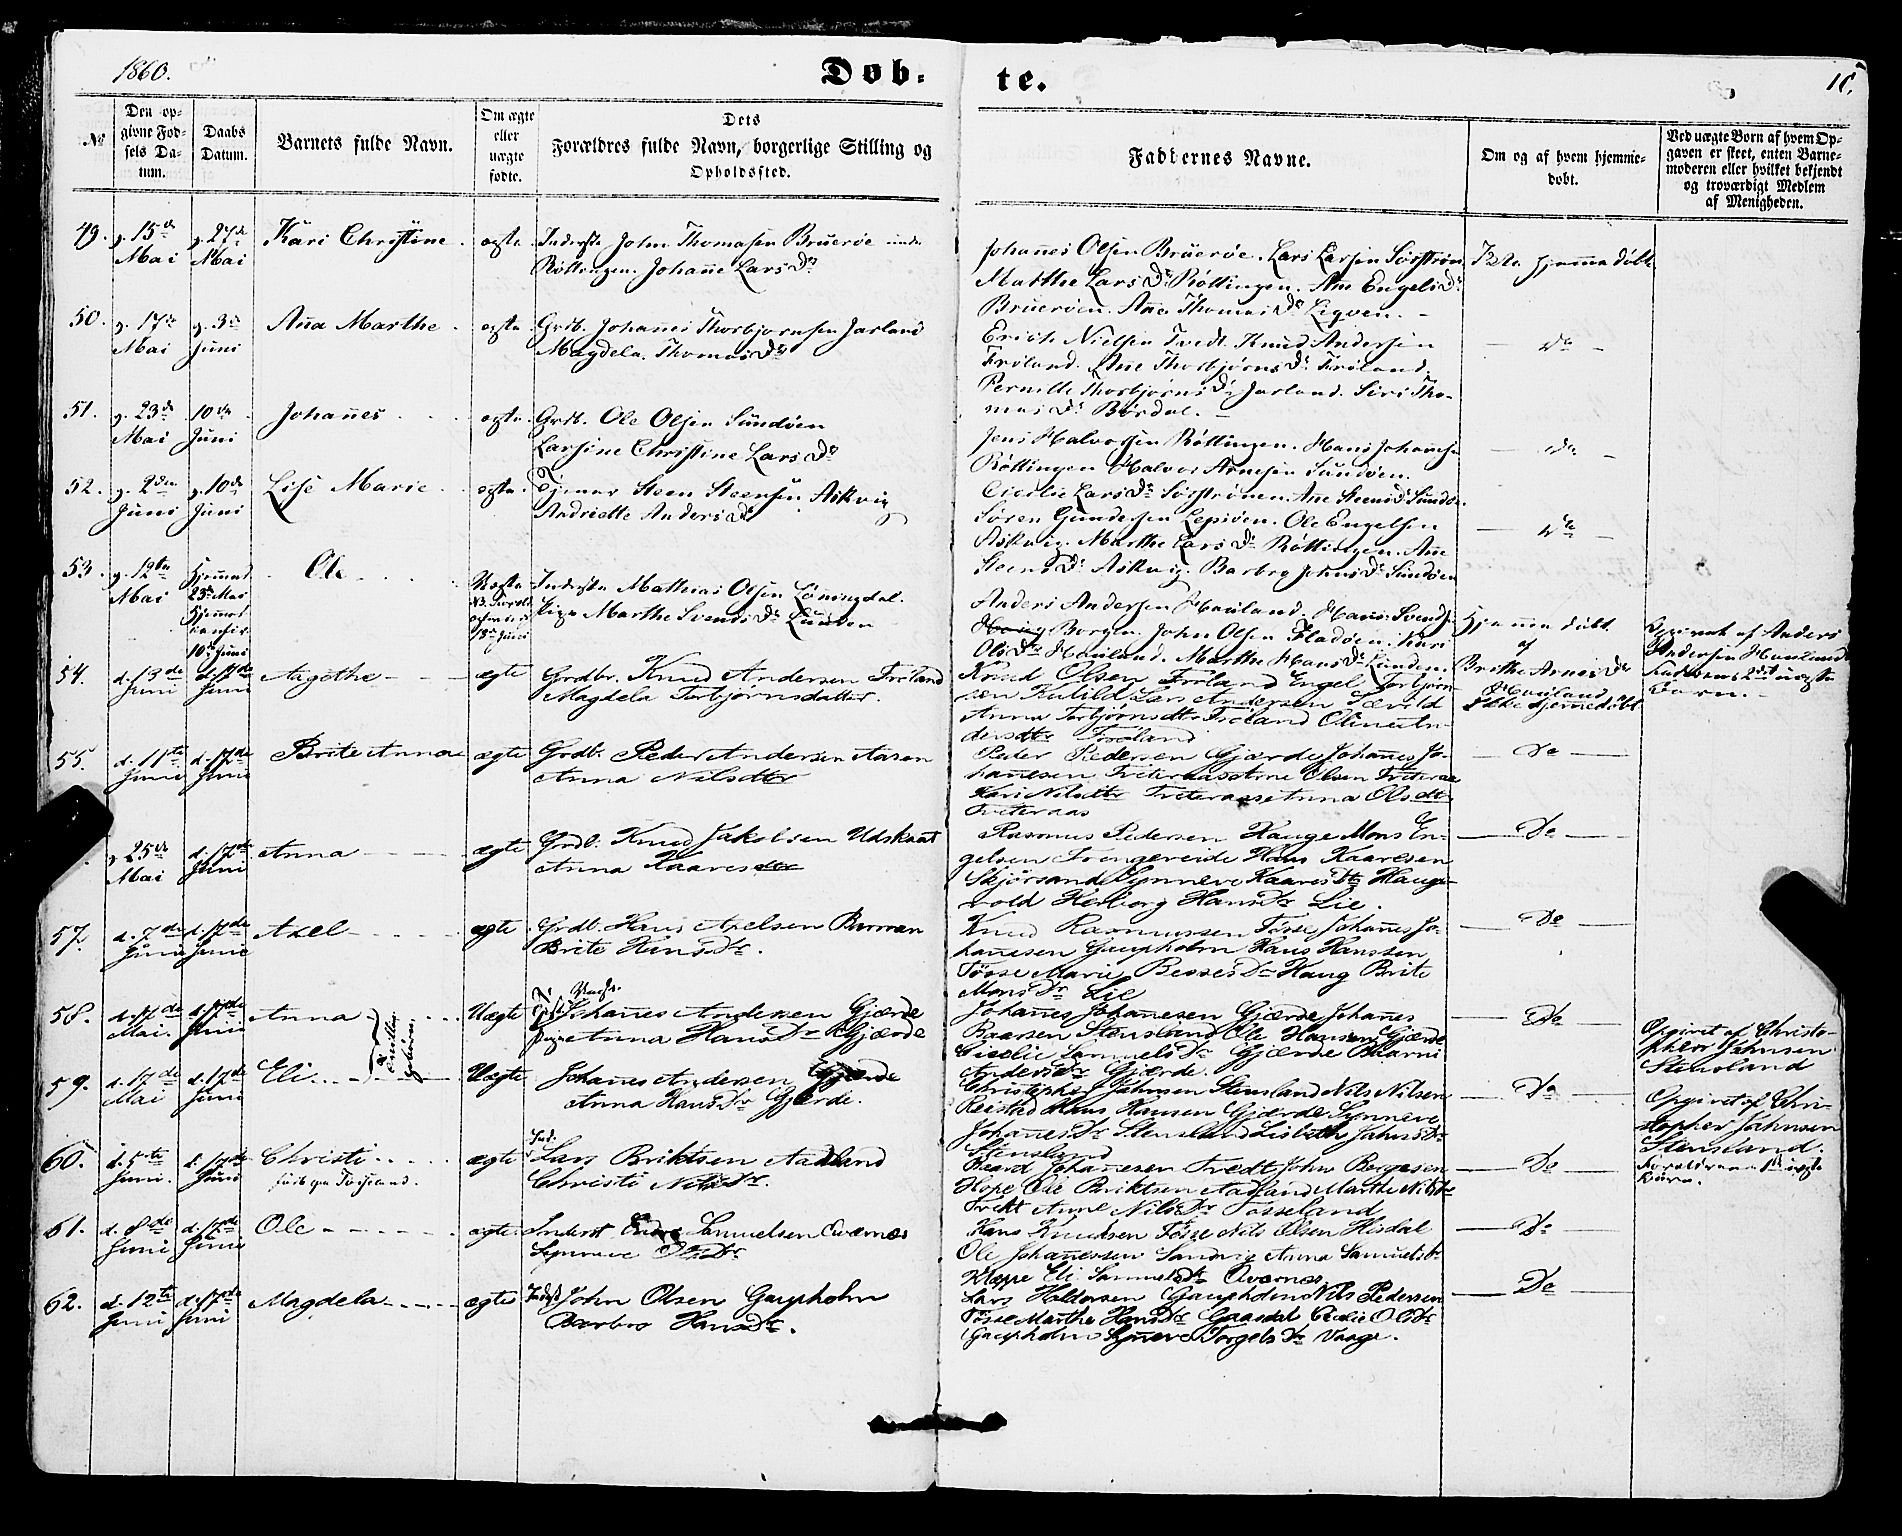 1860.
Døb-
te.
№
Den op-
givne Fød-
sels Da-
tum.
Daabs
Datum.
Barnets fulde Navn.
Om ægte
eller
uægte
fødte.
Dets
Forældres fulde Navn, borgerlige Stilling og
Opholdssted.
Faddernes Navne.
Om og af hvem hjemme-
døbt.
Ved uægte Børn af hvem Op-
gaven er skeet, enten Barne-
moderen eller hvilket bekjendt
og troværdigt Medlem
af Menigheden.
49. 15de Mai 27de Mai Kari Christine ægte Inderste John Thomasen Bruerøe
Røttingen. Johanne Lars Dr
Johannes Olsen Bruerøe. Lars Larsen Sørstrøn
Marthe Lars Dr Røttingen. Ane Engels Dr
Bruerøen. Ane Thomas Dr
Ikke hjemmedøbt
50. 17de Mai 3die Juni Anna Marthe ægte Grdb. Johannes Thorbjørnsen Jarland
Magdela Thomas Dr
Erich Nielsen Tvedt. Knud Andersen
Frøland. Ane Thorbjørns Dr Frøland.
Pernille Thorbjørns Dr Jarland. Siri Tho-
mas Dr Børdal.
do
51. 23de Mai 10de Juni Johannes ægte Grdb. Ole Olsen Sundøen
Larsine Christine Lars Dr
Jens Halvorsen Røttingen. Hans Johannsen
Røttingen Halvor Arnesen Sundøen.
Cicilie Lars Dr Sørstrønen. Ane Steens Dr Sundø.
do
52. 2den Juni 10de Juni Lise Marie ægte Steen Steensen Askvig
Andriette Anders Dr
Søren Gundersen Lepsøen. Ole Engelsen
Askvig. Marthe Lars Dr Røttingen. Ane
Steens Dr Askvig. Barbro Johns Dr Sundøen
do
53. 12te Mai Hjemmed. 23de Mai
10de Juni Ole Uægte Inderste Mathias Olsen Løningdal.
Pige Marthe Svends Dr Lunden
Anders Andersen Hauland. Hans Svends.
Borgen. John Olsen Fladøen. Kari
Ols Dr Hauland. Marthe Hans Dr Lunden.
Hjemmedøbt
af
Brithe Arnes Dr
Hauland
Opgivet af Anders
Andersen Hauland
54. d. 13de Juni d. 17de Juni Aagothe ægte Grdbr. Knud Andersen Frøland
Magdela Torbjørnsdatter.
Knud Olsen Frøland Engel Torbjørn-
sen Lars Andersen Sævold
Anna Torbjørnsdtr Frøland Oline An-
dersdtr Frøland
Ikke hjemmedøbt
55. d. 11te Juni d. 17de Juni Brite Anna ægte Grdb. Peder Andersen Aasen
Anna Nilsdtr
Peder Pedersen Gjærde Johannes Jo-
hannesen Friteraas Arne Olsen Friteraas
Kari Nilsdtr Friteraas Anna Olsdtr
Friteraas
Do
25de Mai d. 17de Juni Anna ægte Grdb. Knud Jakobsen Udskaat
Anna Kaaresdtr
Rasmus Pedersen Hauge Mons En-
gelsen Trengereide Hans Kaaresen
Skjørsand Synneve Kaares Dtr Hauge-
vold Herborg Hans Dr Lie.
Do
57. d. 7de Juni d. 17de Juni Axel ægte Grdb. Hans Axelsen Bauvan
Brite Hans Dr.
Knud Rasmussen Tøsse Johannes Jo-
hannesen Gaupholm Hans Hanssen
Tøsse Marie Besses Dr Haug Brite
Mons Dr Lie
Do
58. d. 17de Mai d. 17de Juni Anna Tvillingesøstre Uægte Johannes Andersen Gjærde
Pige Anna Hans Dr Gjærde
Johannes Johannesen Gjærde Johannes
Baarsen Stensland Ole Hansen Gjærde
Cicelie Samuels Dr Gjærde Baarni
Anders Dr Gjærde.
Do
Opgivet af Christo-
pher Jahnsen
Stensland
59. d. 17de Mai d. 17de Juni Eli Uægte Johannes Andersen Gjærde
Anna Hans Dr Gjærde.
Christopher Jahnsen Stensland Nils Nilsen
Reistad Hans Hansen Gjærde Synneve
Johannes Dr Stensland Lisbeth Jahns Dr
Stensland
Do
Opgivet af Chri-
stopher Jahnsen
Stensland.
60. d. 5te Juni. d. 17de Juni Christi ægte Ind. Lars Briktsen Aadland
Christi Nils Dr.
Baard Johannesen Tvedt John Børgesen
Hope Ole Briktsen Aadland Marthe Nils Dr
Tvedt Anne Nils Dr Tøsseland
Do
61. d. 8de Juni d. 17de Juni Ole ægte Inderst Endre Samuelsen Qvernæs
Synneve Ols Dr
Hans Knudsen Tøsse Nils Olsen Hisdal
Ole Johannessen Sandvig Anna Samuelsdr.
Kleppe Eli Samuels Dr Qvernæs
Do
62. d. 12te Juni d. 17de Juni Magdela ægte Inds. John Olsen Gaupholm
Barbro Hans Dr.
Lars Haldorsen Gaupholm Nils Pedersen
Tøsse Marthe Hans Dr Gaasdal Cicilie Ols Dr
Gaupholm Synneve Torgels Dr Vaage.
Do